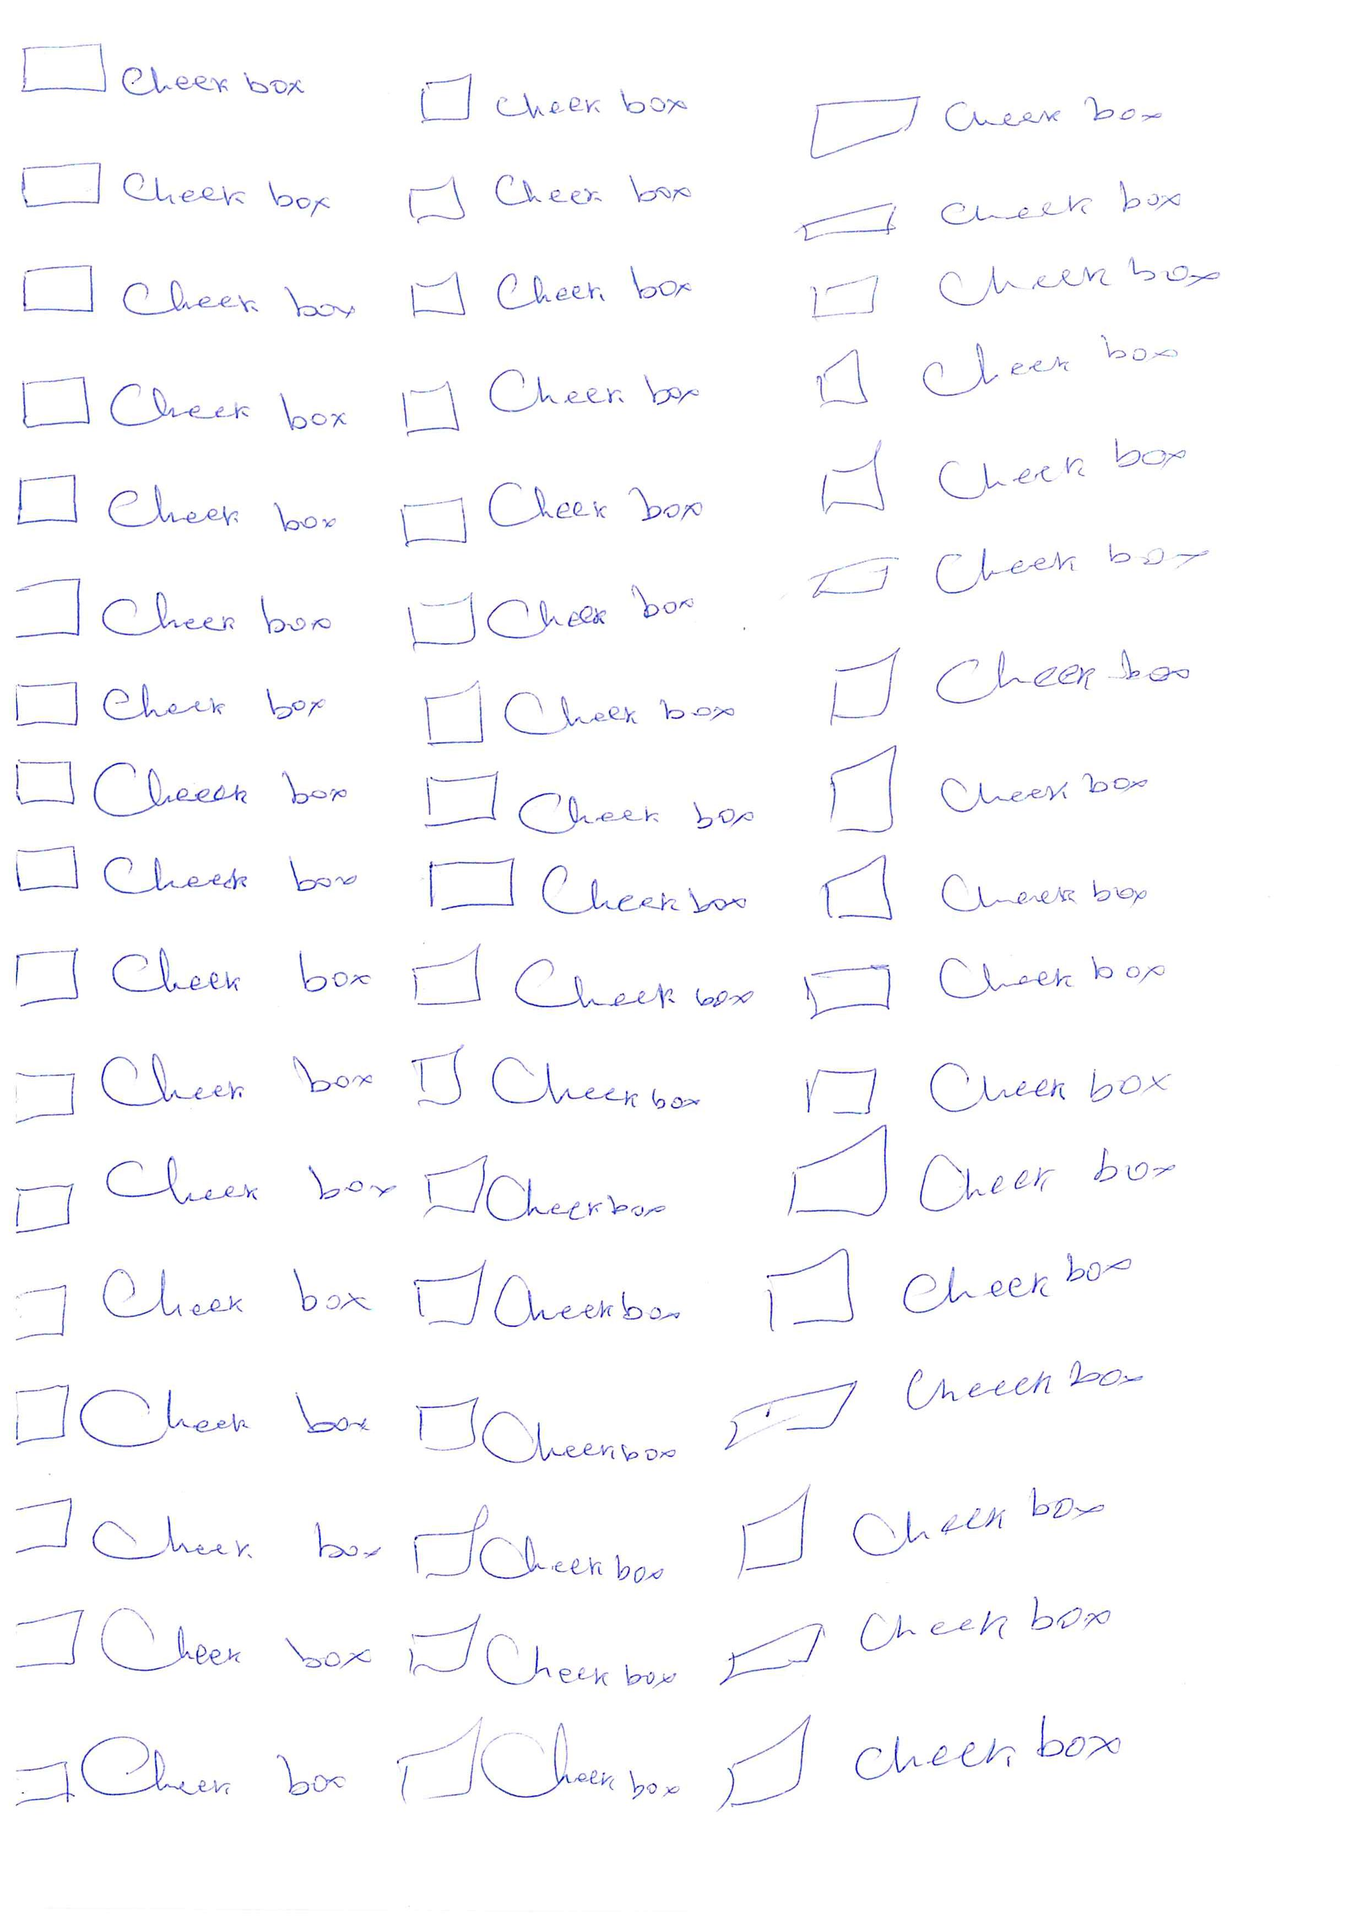 Cheek box
Cheek box
Cheek box
Cheek box
Cheek box
Cheek box
Cheek box
Cheek box
Cheek box
Cheek box
Cheek box
Cheek box
Cheek box
Cheek box
Cheek box
Cheek box
Cheek box
Cheek box
Cheek box
Cheek box
Cheek box
Cheek box
Cheek box
Cheek box
Cheek box
Cheek box
Cheek box
Cheek box
Cheek box
Cheek box
Cheek box
Cheek box
Cheek box
Cheek box
Cheek box
Cheek box
Cheek box
Cheek box
Cheek box
Cheek box
Cheek box
Cheek box
Cheek box
Cheek box
Cheek box
Cheek box
Cheek box
Cheek box
Cheek box
Cheek box
Cheek box